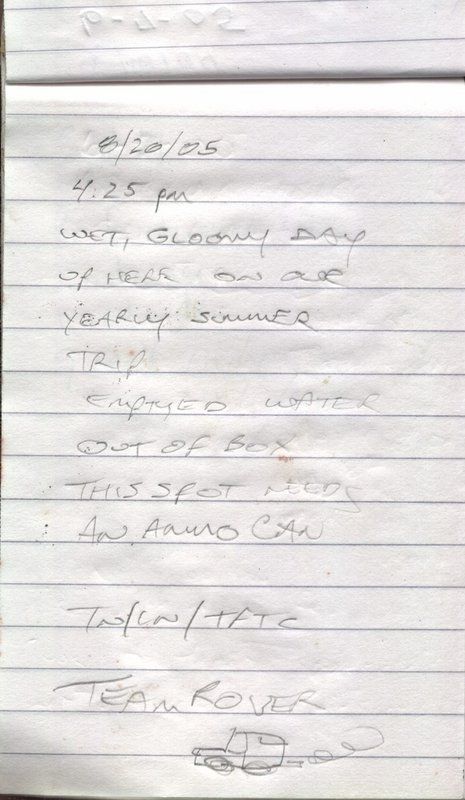 8/20/05
4:25 pm
WET, GLOOMY DAY
UP HERE ON OUR
YEARLY SUMMER
TRIP
EMPTYED WATER
OUT OF BOX
THIS SPOT NEEDS
AN AMMO CAN
TN/LN/TFTC
TEAM ROVER